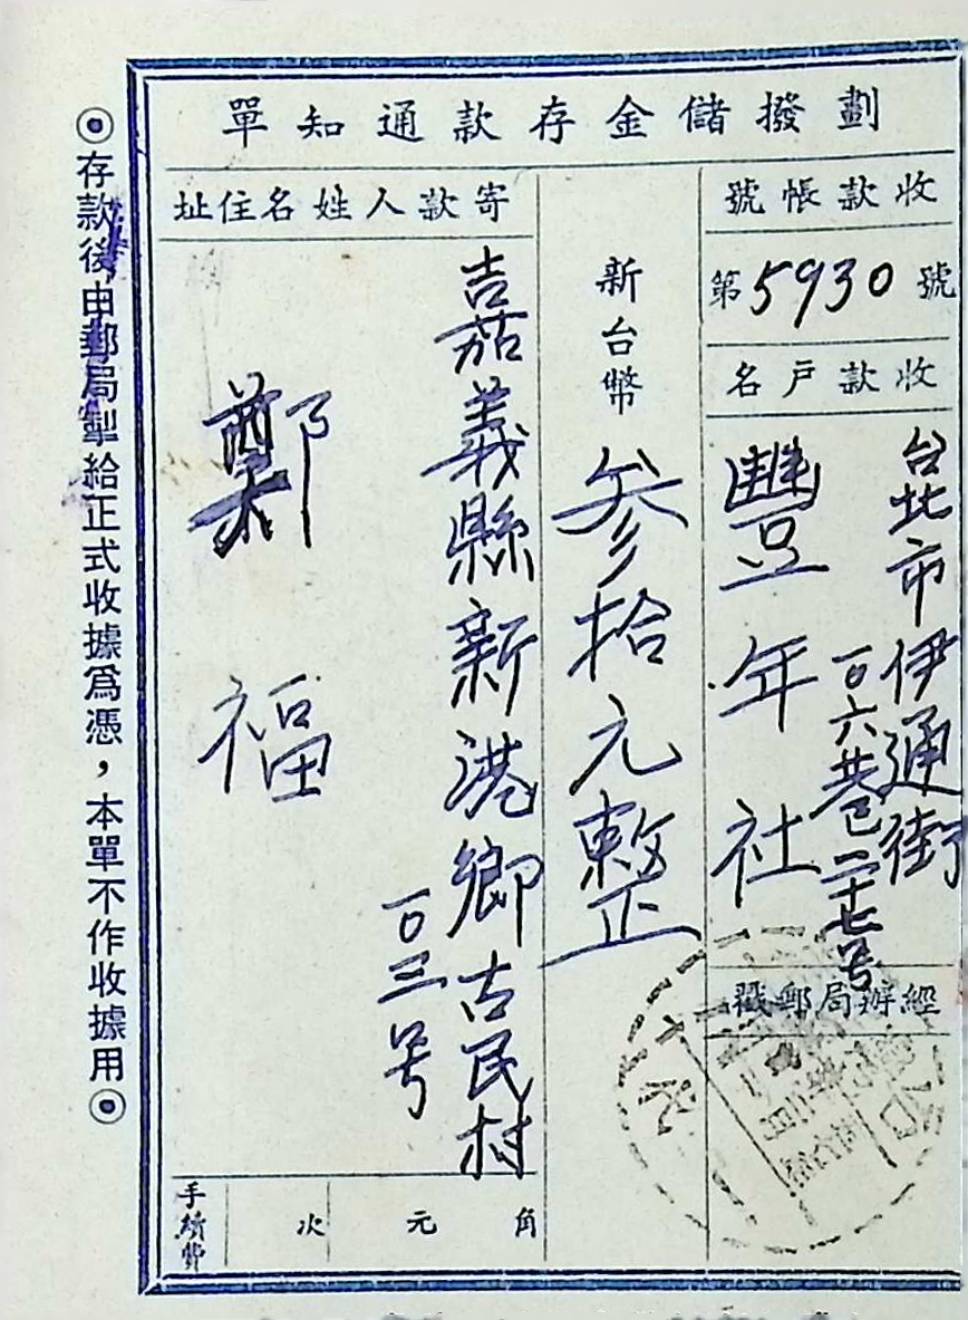 劃撥儲金存款通知單
收款帳號
第5930號
收款戶名
台北市伊通街
一〇六巷二十七号
豐年社
經辦局郵戳
新台幣參拾元整
寄款人姓名住址
嘉義縣新港鄉古民村
一〇三号
鄭福
手續費
次
元
角
◉存款後由郵局掣給正式收據為憑，本單不作收據用◉